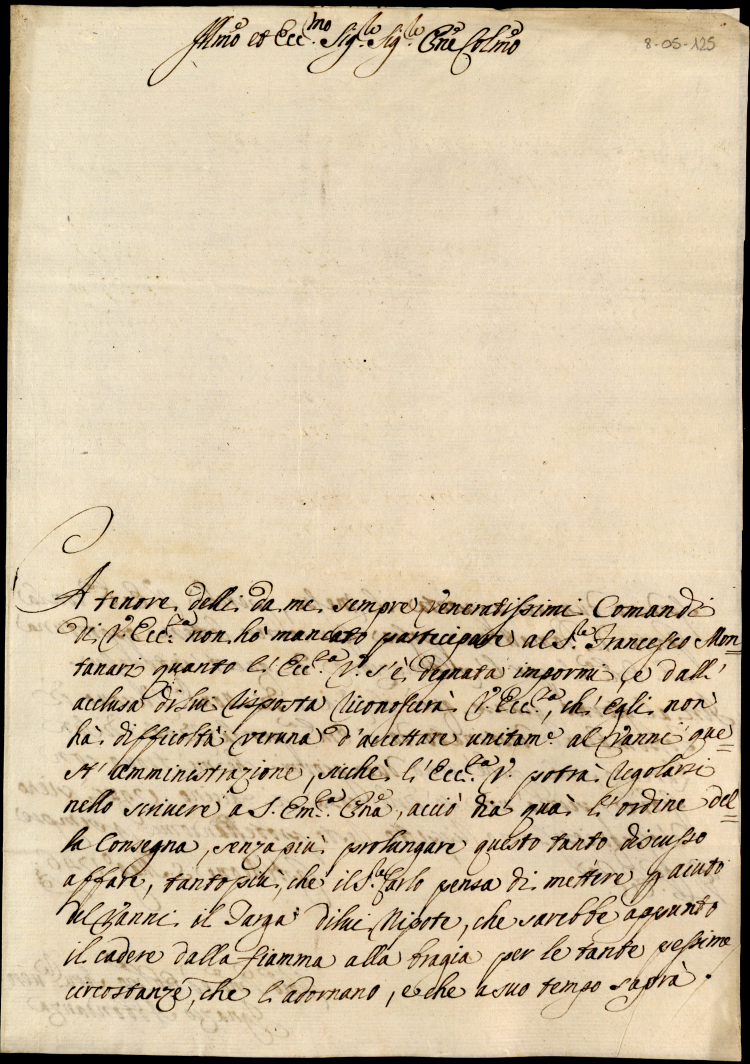 Illmõ et Ecc.mo Sig.re Sig.re Pñe Colmõ
8-05-125
A tenore delli da me sempre veneratissimi Comandi
di V. Ecc.za non hò mancato participare al S.re Francesco Mon=
tanari quanto l'Ecc.za V. s'è degnata impormi, e dall'
acclusa di lui risposta riconoscerà V. Ecc.za, ch'egli non
hà difficoltà veruna d'accettare unitam.e al Vanni que=
st'amministrazione, sicchè l'Ecc.za V. potrà regolarsi
nello scrivere à S. Em.za Pña, acciò dia quà l'ordine del=
la Consegna, senza più prolungare questo tanto discusso
affare, tanto più, che il S.re Carlo pensa di mettere p aiuto
al Vanni il Targa di lui Nipote, che sarebbe appunto
il cadere dalla fiamma alla bragia per le tante pessime
circostanze, che l'adornano, e che a suo tempo saprà.